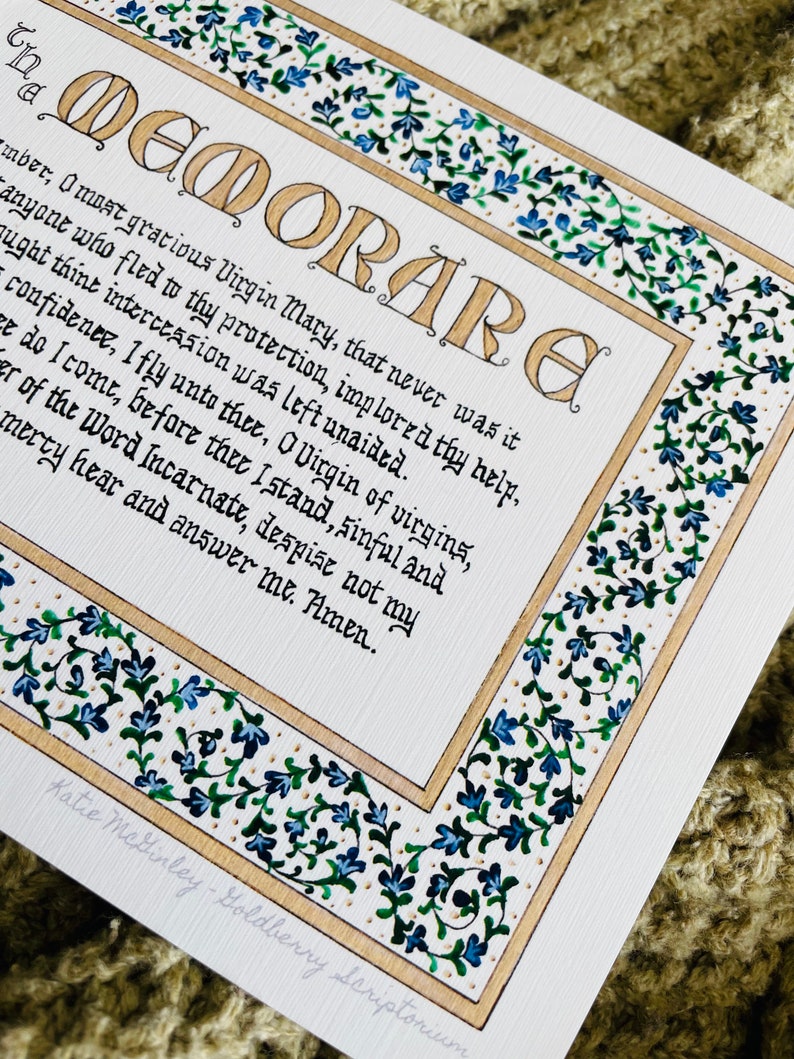 The
MEMORARE
mber, O most gracious Virgin Mary, that never was it
t anyone who fled to thy protection, implored thy help,
ught thine intercession was left unaided.
s confidence, I fly unto thee, O Virgin of virgins,
ee do I come, before thee I stand, sinful and
er of the Word Incarnate, despise not my
mercy hear and answer me. Amen.
Katie McGinley - Goldberry Scriptorium